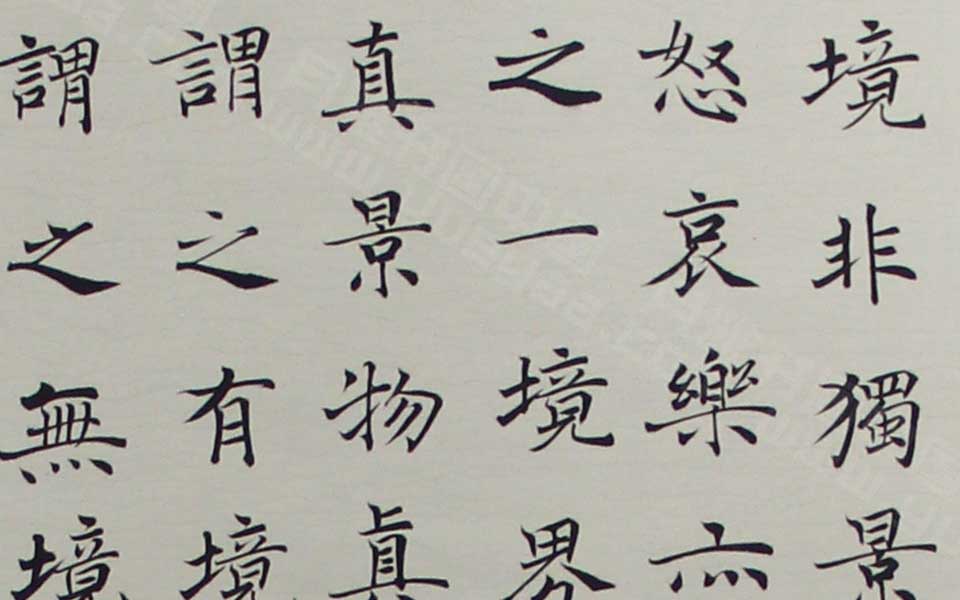 境非獨景
怒哀樂亦
之一境界
真景物真
謂之有境
謂之無境